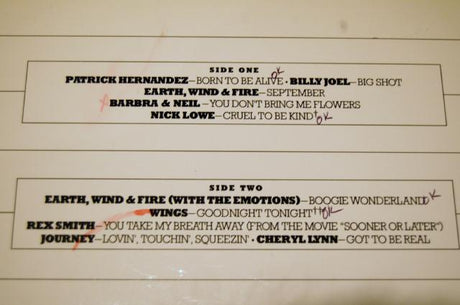 SIDE ONE
PATRICK HERNANDEZ—BORN TO BE ALIVE • BILLY JOEL—BIG SHOT OK
EARTH, WIND & FIRE—SEPTEMBER
BARBRA & NEIL—YOU DON'T BRING ME FLOWERS
NICK LOWE—CRUEL TO BE KIND† OK
SIDE TWO
EARTH, WIND & FIRE (WITH THE EMOTIONS)—BOOGIE WONDERLAND OK
WINGS—GOODNIGHT TONIGHT†† OK
REX SMITH—YOU TAKE MY BREATH AWAY (FROM THE MOVIE "SOONER OR LATER")
JOURNEY—LOVIN', TOUCHIN', SQUEEZIN' • CHERYL LYNN—GOT TO BE REAL